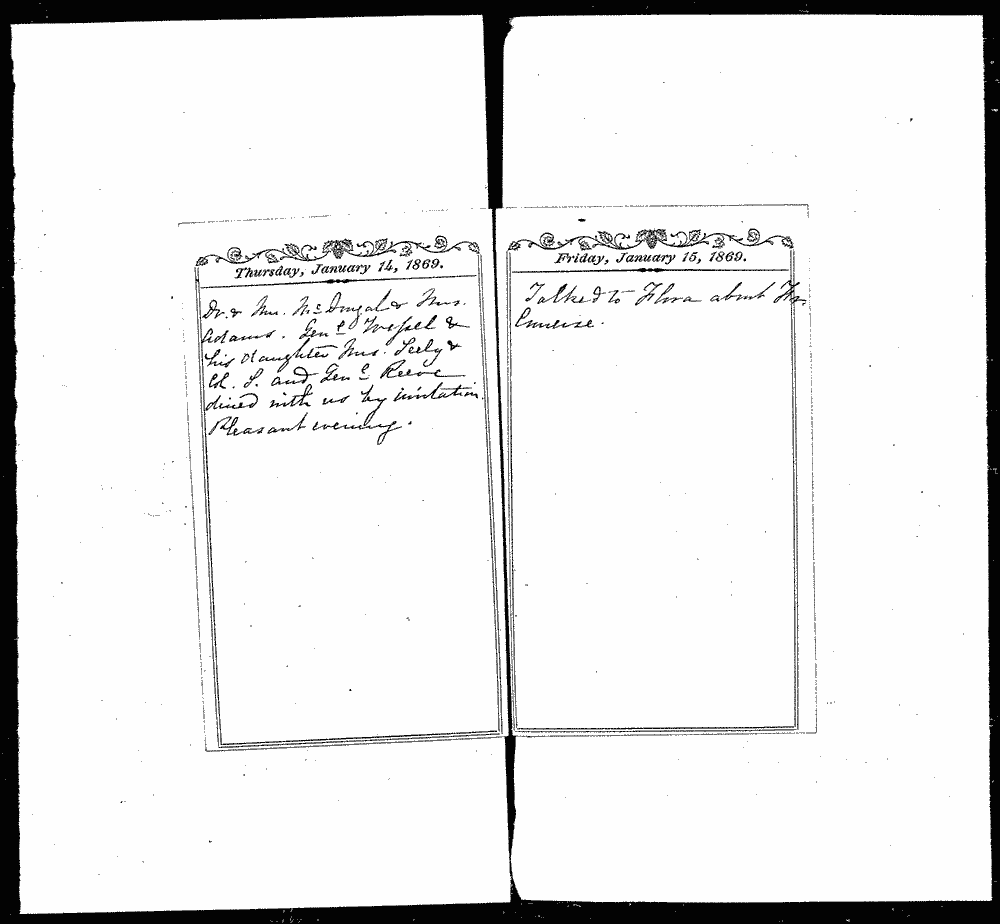 Thursday, January 14, 1869.
Dr. & Mrs. McDougal & Mrs.
Adams. Genl Wessel &
his daughter Mrs. Seely &
Col. S. and Genl Reeve
dined with us by invitation
Pleasant evening.
Friday, January 15, 1869.
Talked to Flora about